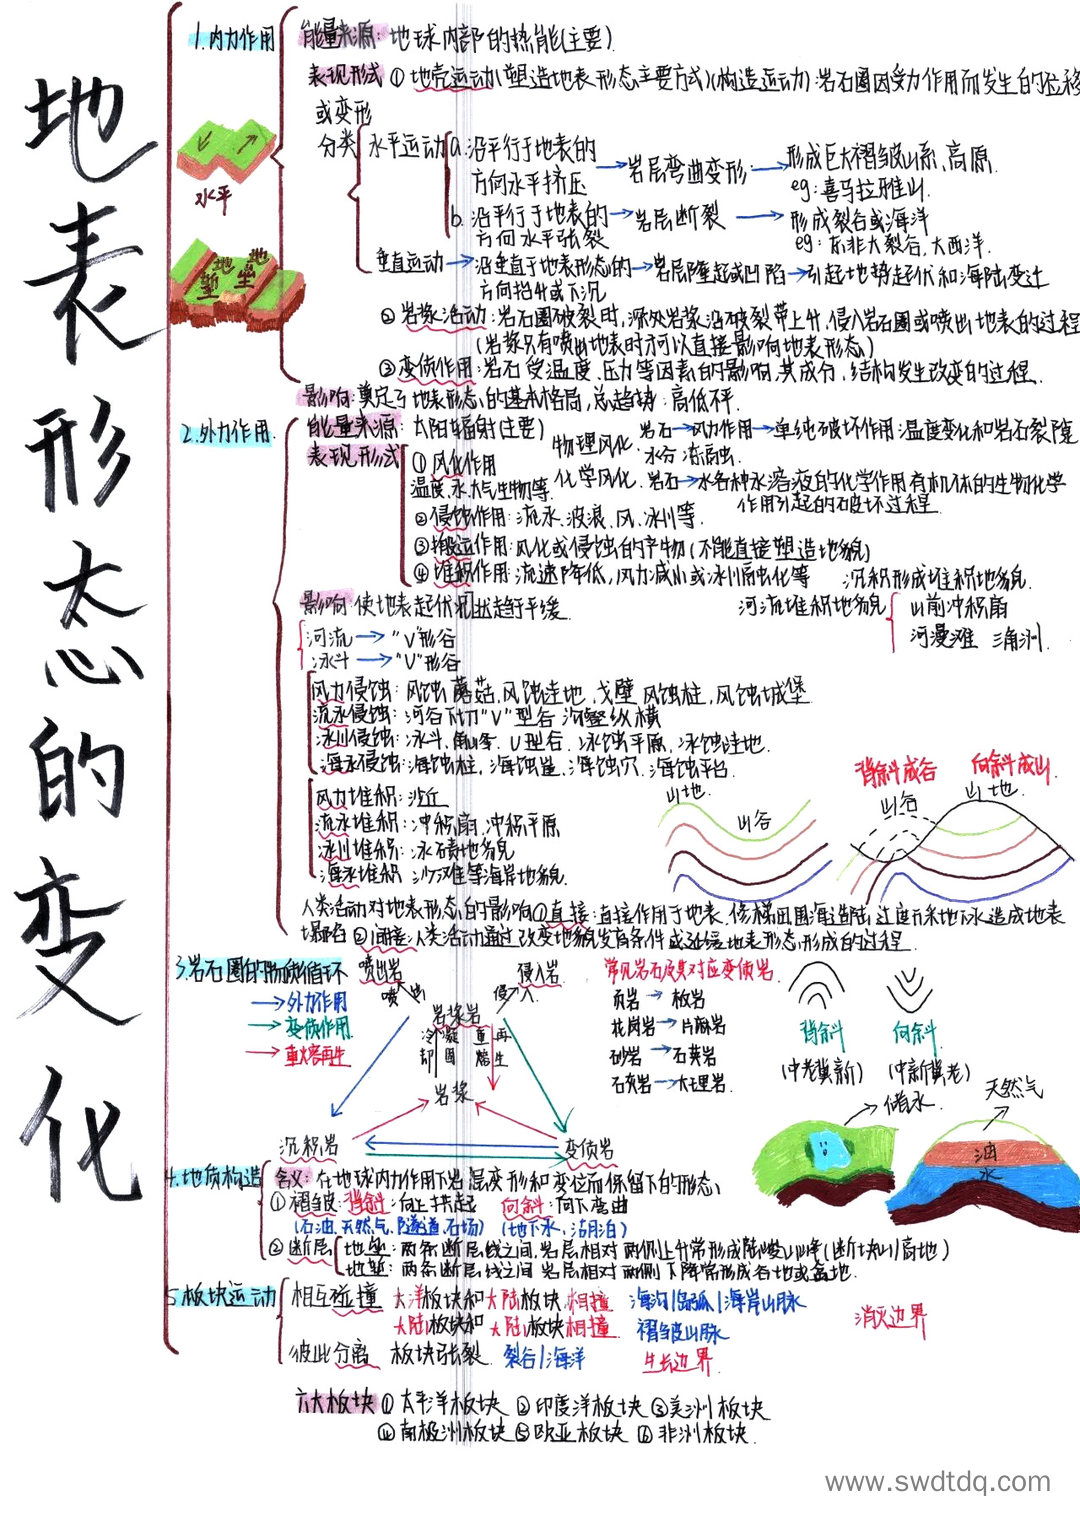 地表形态的变化
1.内力作用
能量来源:地球内部的热能(主要).
表现形式①地壳运动(塑造地表形态主要方式)(构造运动):岩石圈因受力作用而发生的位移
或变形
分类 水平运动 a.沿平行于地表的
方向水平挤压 → 岩层弯曲变形 → 形成巨大褶皱山系,高原.
eg:喜马拉雅山.
b.沿平行于地表的
方向水平张裂 → 岩层断裂 → 形成裂谷或海洋
eg:东非大裂谷,大西洋.
垂直运动→沿垂直于地表形态的→岩层隆起或凹陷→引起地势起伏和海陆变迁
方向抬升或下沉
水平
地垒
地堑
地垒
②岩浆活动:岩石圈破裂时,深处岩浆沿破裂带上升,侵入岩石圈或喷出地表的过程
(岩浆只有喷出地表时才可以直接影响地表形态)
③变质作用:岩石受温度、压力等因素的影响,其成分、结构发生改变的过程.
影响:奠定了地表形态的基本格局,总趋势:高低不平.
2.外力作用.
能量来源:太阳辐射(主要)
表现形式
①风化作用
温度,水,大气生物等.
物理风化: 岩石→风力作用→单纯破坏作用:温度变化和岩石裂隙
水分冻融.
化学风化. 岩石→水各种水溶液的化学作用有机体的生物化学
作用引起的破坏过程
②侵蚀作用:流水、波浪、风、冰川等.
③搬运作用:风化或侵蚀的产物(不能直接塑造地貌)
④堆积作用:流速降低,风力减小或冰川融化等 沉积形成堆积地貌.
影响:使地表起伏状况趋于平缓.
河流堆积地貌 山前冲积扇
河漫滩 三角洲.
河流→"V"形谷
冰斗→"V"形谷
风力侵蚀:风蚀蘑菇,风蚀洼地,戈壁,风蚀柱,风蚀城堡
流水侵蚀:河谷下切"V"型谷 沟壑纵横
冰川侵蚀:冰斗,角峰,U型谷,冰蚀平原,冰蚀洼地.
海水侵蚀:海蚀柱,海蚀崖,海蚀穴,海蚀平台.
风力堆积:沙丘
流水堆积:冲积扇,冲积平原
冰川堆积:冰碛地貌
海水堆积 沙滩等海岸地貌.
山地.
山谷
背斜成谷
山谷
向斜成山
山地.
人类活动对地表形态的影响①直接:直接作用于地表,修梯田围海造陆,过度开采地下水造成地表
塌陷 ②间接:人类活动通过改变地貌发育条件或延缓地表形态形成的过程.
3.岩石圈的物质循环
→外力作用
→变质作用.
→重熔再生
喷出岩
侵入岩
喷出
侵入
岩浆岩
冷却凝固
重熔再生
岩浆
沉积岩
变质岩
常见岩石及其对应变质岩
页岩→板岩
花岗岩→片麻岩
砂岩→石英岩
石灰岩→大理岩.
背斜
(中老翼新)
向斜
(中新翼老)
储水.
天然气
油
水
4.地质构造
含义:在地球内力作用下岩层变形和变位而保留下的形态、
①褶皱:背斜:向上拱起 向斜:向下弯曲
(石油、天然气、隧道、石场) (地下水、湖泊)
②断层 地垒:两条断层线之间,岩层相对两侧上升常形成陡峻山峰(断块山高地)
地堑:两条断层线之间 岩层相对两侧下降常形成谷地或盆地.
5.板块运动
相互碰撞 大洋板块和大陆板块相撞 海沟|岛弧|海岸山脉
大陆板块和大陆板块相撞 褶皱山脉
消灭边界
彼此分离 板块张裂 裂谷|海洋 生长边界
六大板块①太平洋板块 ②印度洋板块 ③美洲板块
④南极洲板块 ⑤欧亚板块 ⑥非洲板块.
www.swdtdq.com